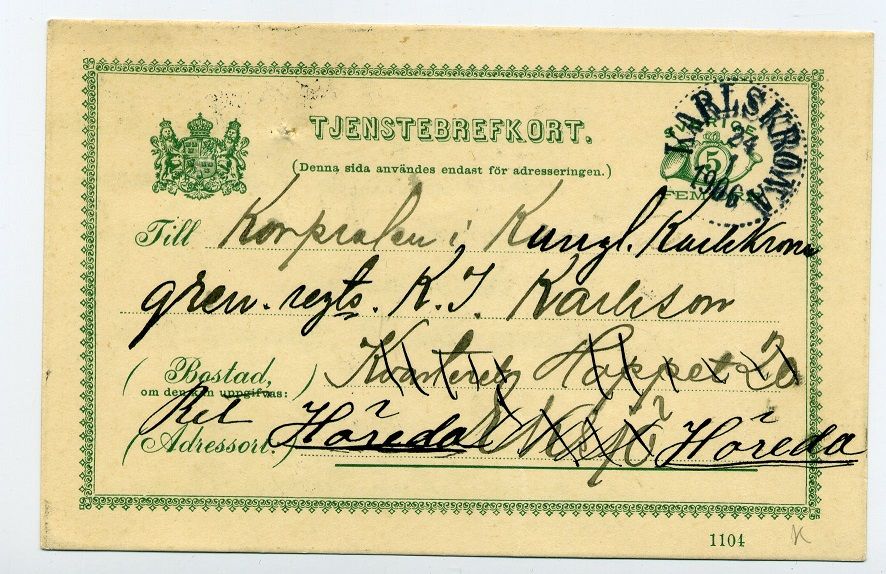 TJENSTEBREFKORT.
(Denna sida användes endast för adresseringen.)
5
FEM
KARLSKRONA
24
1
1906
Till Korpralen i Kungl. Karlskrona
gren. regts. K. J. Karlsson
(Bostad, om den kan uppgifvas:) Kvarteret Hoppet 20
Ret
(Adressort.) Höreda Eksjö Höreda
1104
K